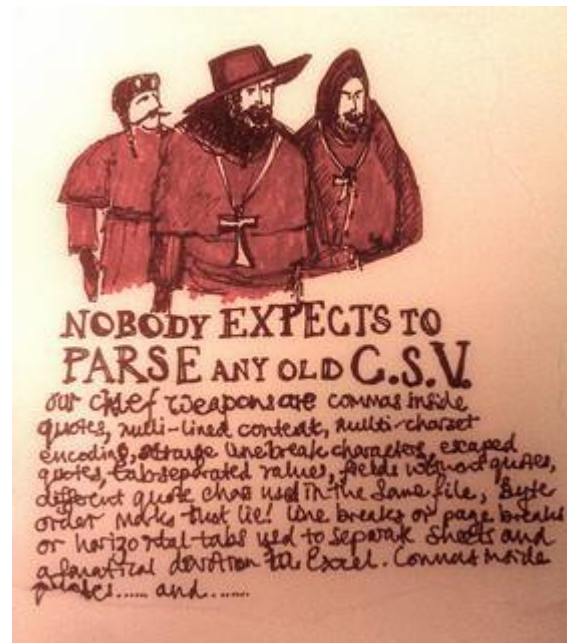 NOBODY EXPECTS TO
PARSE ANY OLD C.S.V.
our chief weapons are commas inside
quotes, multi-lined content, multi-charset
encoding, strange linebreak characters, escaped
quotes, tab separated values, fields without quotes,
different quote chars used in the same file, Byte
order marks that lie! line breaks or page breaks
or horizontal tabs used to separate sheets and
a fanatical devotion to Excel. Commas inside
quotes...... and.......